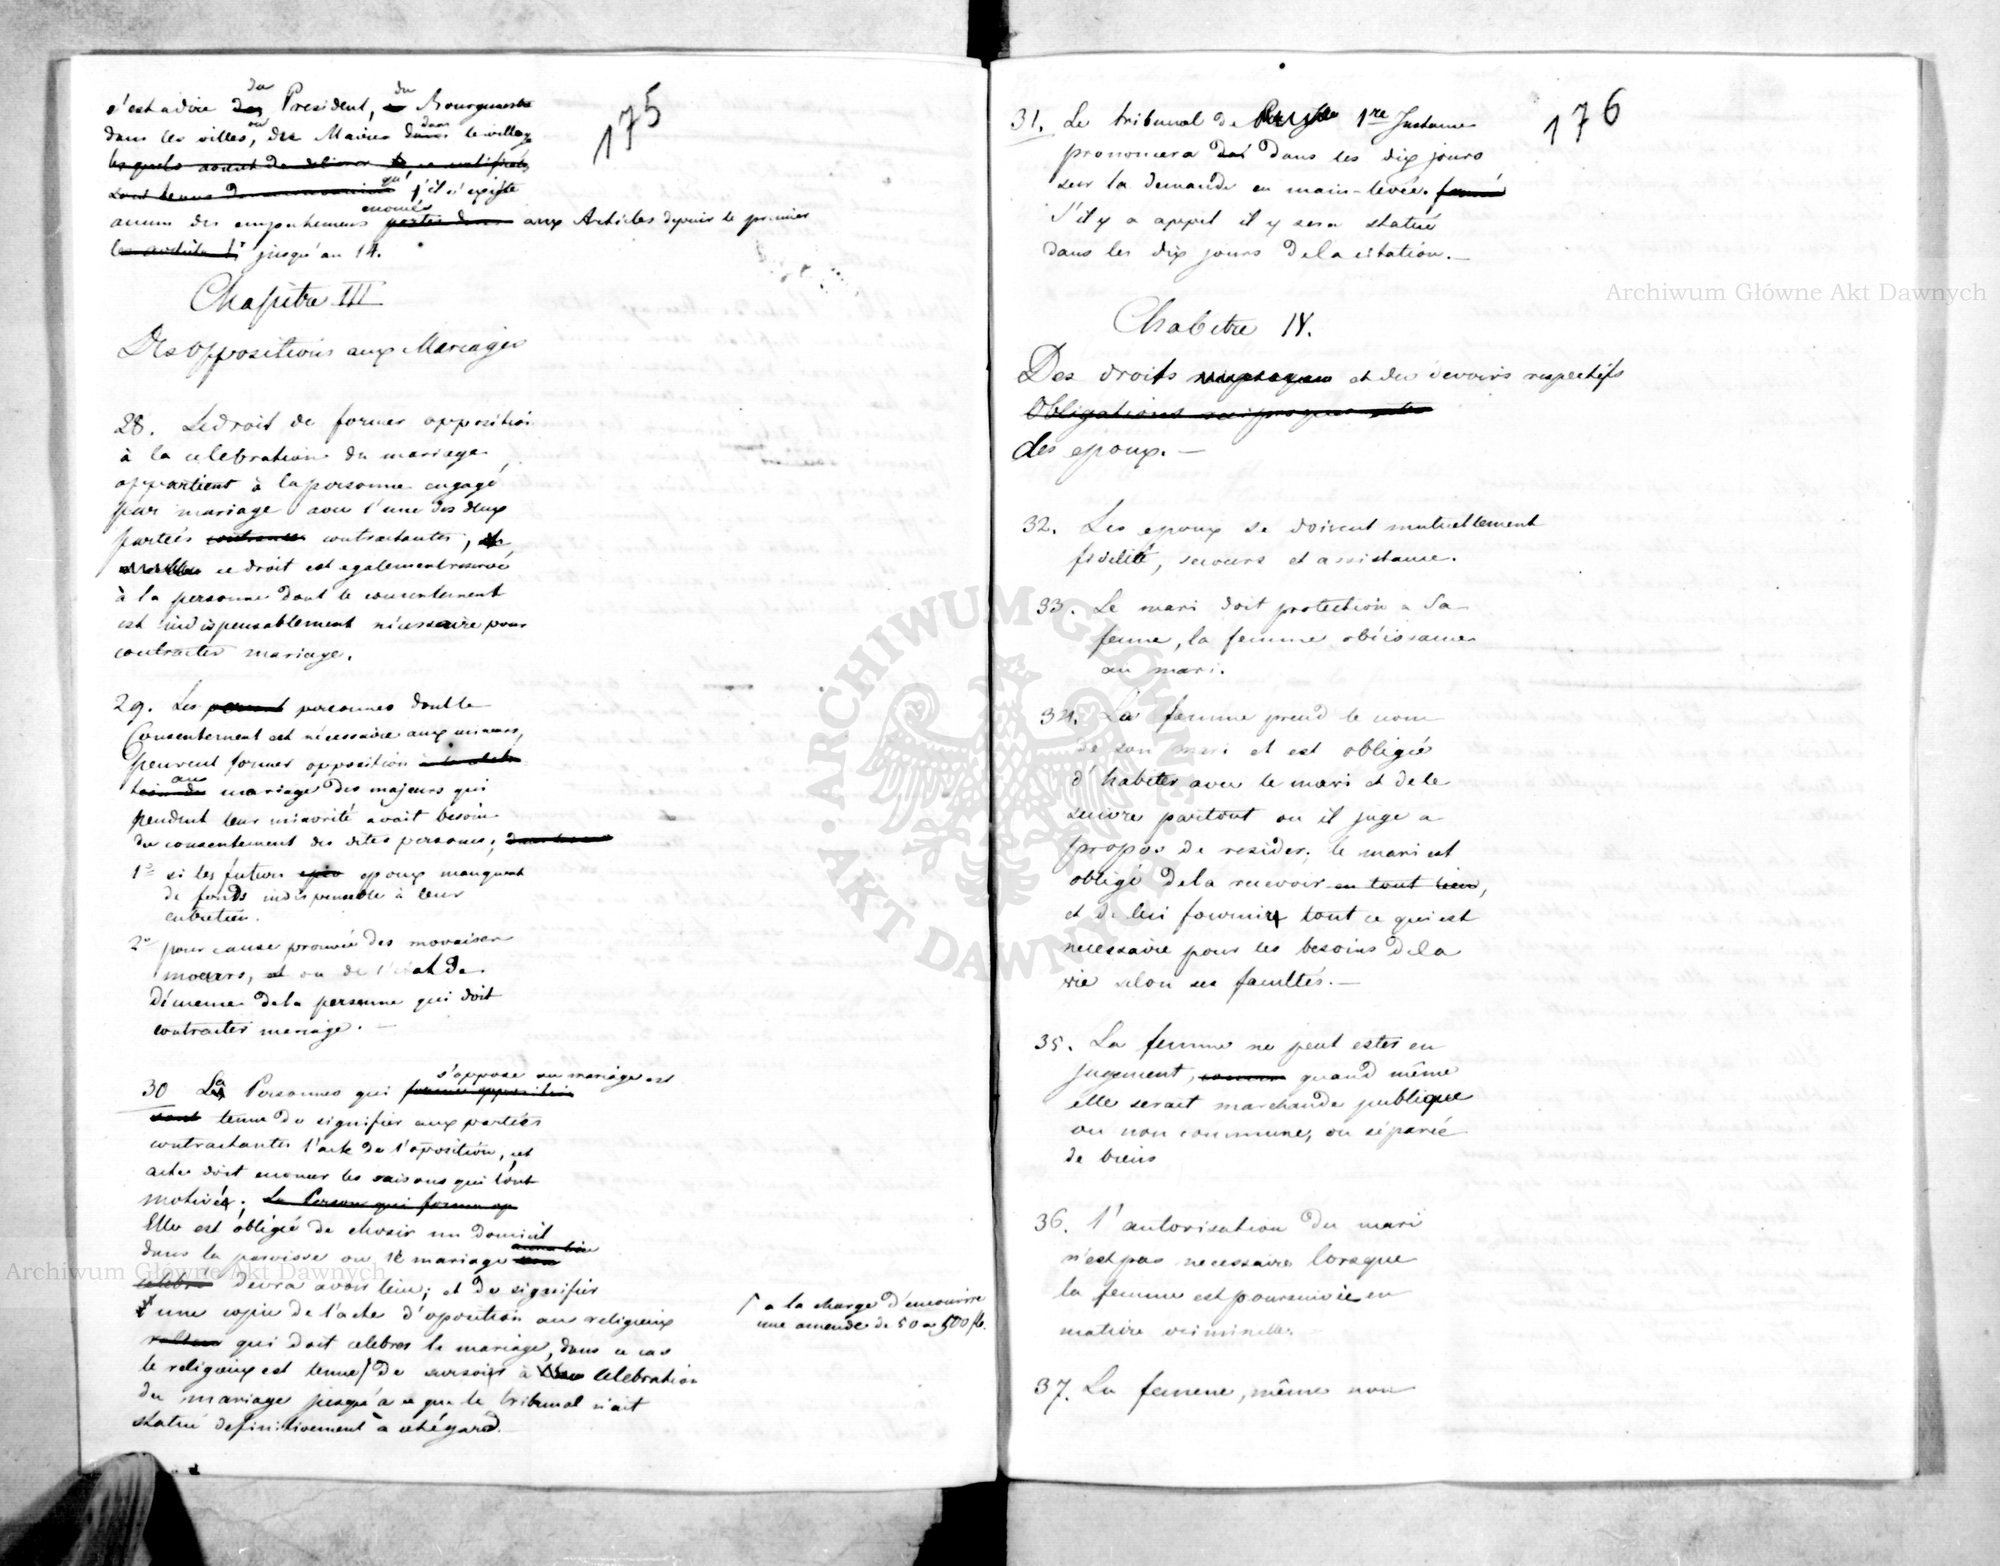 175
du du
c'est adire des President, Bourgmestre
ou dans
dans les villes, des Maires dans le village
lesquels avant de delivrer ce certificat,
sont tenus de qu' s'il n'existe
enoncés
aucun des empechemens aux Articles depuis le premier
les articles 1r jusqu'au 14.
Chapitre III
Des oppositions aux Mariages
28. Le droit de former opposition
à la celebration du mariage,
appartient à la personne engagé
par mariage avec l'une des deux
parties contractantes,
ce droit est egalement reservé
à la personne dont le consentement
est indispensablement nécessaire pour
contracter mariage.
29. Les personnes dont le
Consentement est nécessaire aux mineurs,
peuvent former opposition
au
mariage des majeurs qui
pendent leur minorité avait besoin
du consentement des dites personnes;
1o si les futures epoux manquent
de fonds indispensable à leur
entretien.
2o pour cause prouvée des movaises
moeurs, et ou de l'état de
démence dela personne qui doit
contracter mariage. —
s'oppose au mariage est
30 La Personnes qui forme opposition
sont tenue de signifier aux parties
contractantes l'acte de l'oposition, cet
acte doit enoncer les raisons qui l'ont
motivé; La Personne qui forme op
Elle est obligée de choisir un domicil
dans la paroisse ou le mariage
celebré devra avoir lieu; et de signifier
une copie de l'acte d'oposition au religieux
qui doit celebrer le mariage, dans ce cas
le religieux est tenue de surseoir à celebration
du mariage jusqu'a ce que le tribunal n'ait
statué definitivement à cet égard.
a la charge d'encourire
une amende de 50 a 500 fl.
176
31. Le tribunal de 1re Instance
prononcera dans les dix jours
sur la demande en main-levée.
S'il y a appel il y sera statué
dans les dix jours dela citation. —
Chabitre IV.
Des droits et des devoirs respectifs
Obligations reciproques
des epoux. —
32. Les epoux se doivent mutuellement
fidelité, secours et assistance.
33. Le mari doit protection a sa
femme, la femme obéissance
au mari.
34. La femme prend le nom
de son mari et est obligée
d'habiter avec le mari et de le
suivre partout ou il juge a
propos de resider; le mari est
obligé dela recevoir en tout lieu,
et de lui fournir tout ce qui est
necessaire pour les besoins dela
vie selon ses facultés. —
35. La femme ne peut ester en
jugement, quand même
elle serait marchande publique
ou non commune, ou séparée
de biens
36. l'autorisation du mari
n'est pas necessaire lorsque
la femme est poursuivie en
matiere criminelle.
37. La femme, même non
Archiwum Główne Akt Dawnych
Archiwum Główne Akt Dawnych
ARCHIWUM GŁÓWNE · AKT DAWNYCH ·